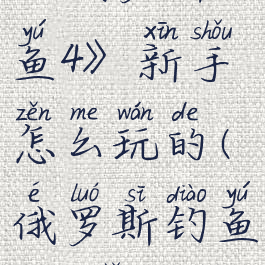 yú xīn shǒu
鱼4》新手
zěn me wán de
怎么玩的(
é luó sī diào yú
俄罗斯钓鱼